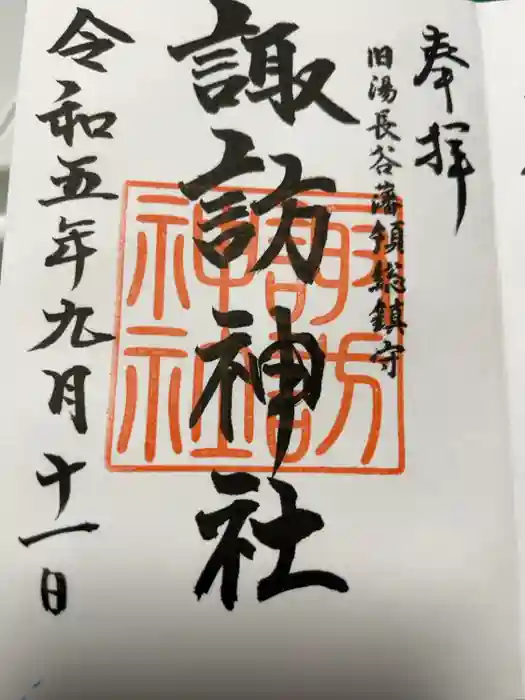 奉拝
旧湯長谷藩領総鎮守
諏訪神社
諏訪神社
令和五年九月十一日